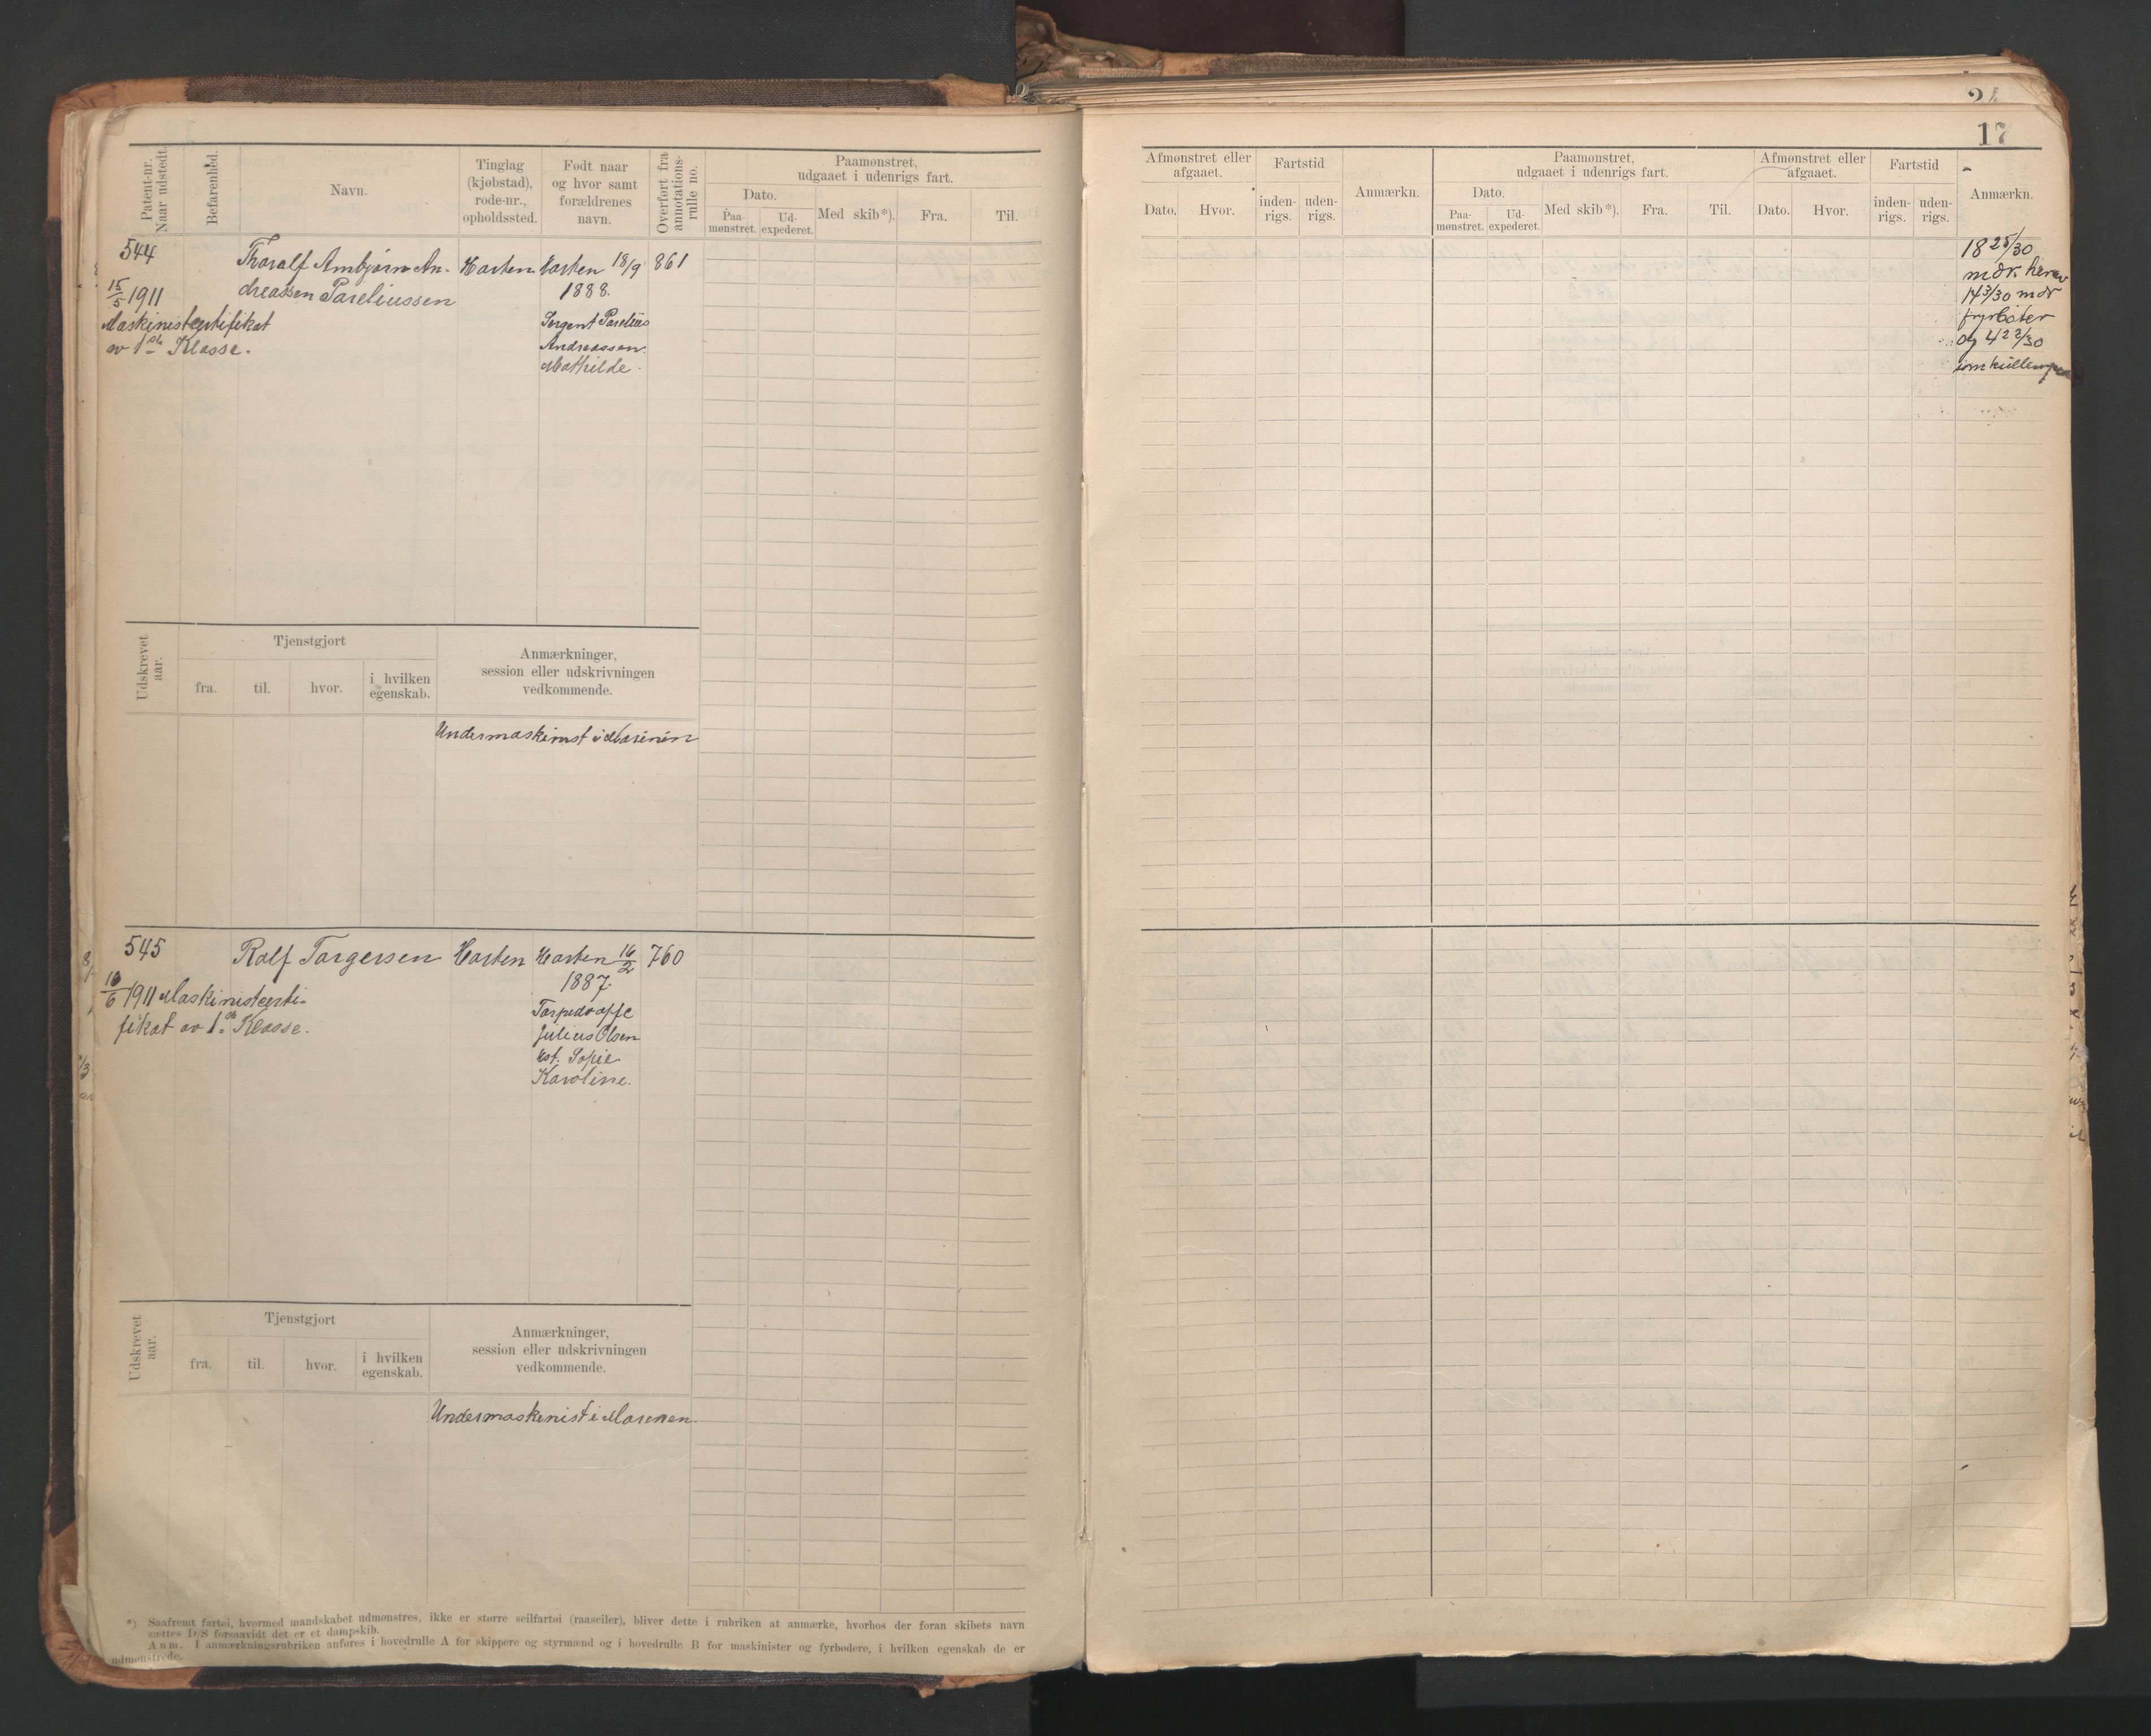 17
Patent-nr.
Naar udstedt.
Befarenhed.
Navn.
Tinglag
(kjøbstad),
rode-nr.,
opholdssted.
Født naar
og hvor samt
forældrenes
navn.
Overført fra
annotations-
rulle no.
Paamønstret,
udgaaet i udenrigs fart.
Dato.
Paa-
mønstret.
Ud-
expederet.
Med skib*).
Fra.
Til.
Afmønstret eller
afgaaet.
Dato.
Hvor.
Fartstid
inden-
rigs.
uden-
rigs.
Anmærkn.
Paamønstret,
udgaaet i udenrigs fart.
Dato.
Paa-
mønstret.
Ud-
expederet.
Med skib*).
Fra.
Til.
Afmønstret eller
afgaaet.
Dato.
Hvor.
Fartstid
inden-
rigs.
uden-
rigs.
Anmærkn.
544
15/5 1911
Maskinistcertifikat
av 1ste Klasse.
Thoralf Arnbjørn An-
dreassen Pareliussen
Horten
Horten 18/9
1888.
Sergent Parelius
Andreassen
Mathilde.
861
18 25/30
mdr herav
14 3/30 mdr
fyrbøter
og 4 22/30
som
Udskrevet
aar.
Tjenstgjort
fra.
til.
hvor.
i hvilken
egenskab.
Anmærkninger,
session eller udskrivningen
vedkommende.
Undermaskinist i Marinen
545
6 1911 Maskinistcerti-
fikat av 1ste Klasse.
Rolf Torgersen
Horten
Horten 16/2
1887.
Julius Olsen
Sofie
Karoline.
760
Udskrevet
aar.
Tjenstgjort
fra.
til.
hvor.
i hvilken
egenskab.
Anmærkninger,
session eller udskrivningen
vedkommende.
Undermaskinist i Marinen.
*) Saafremt fartøi, hvormed mandskabet udmønstres, ikke er større seilfartøi (raaseiler), bliver dette i rubriken at anmærke, hvorhos der foran skibets navn
sættes D/S forsaavidt det er et dampskib.
Anm. I anmærkningsrubriken anføres i hovedrulle A for skippere og styrmænd og i hovedrulle B for maskinister og fyrbødere, i hvilken egenskab de er
udmønstrede.